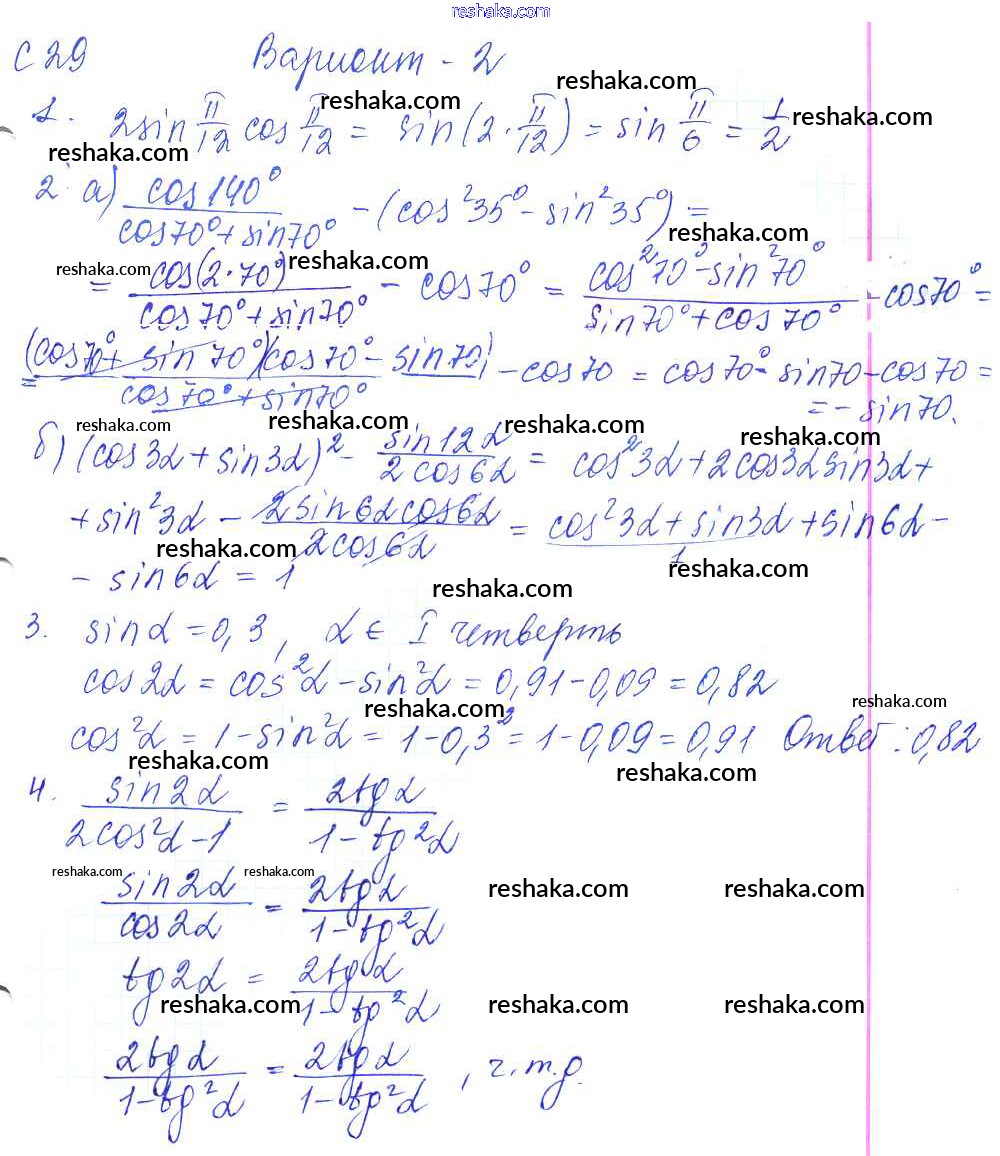 reshaka.com
С 29 Вариант - 2
reshaka.com
1. 2sin π/12 cos π/12 = sin(2·π/12) = sin π/6 = 1/2
reshaka.com reshaka.com
reshaka.com
2. а) cos140°/(cos70°+sin70°) - (cos²35° - sin²35°) =
reshaka.com
= cos(2·70°)/(cos70°+sin70°) - cos70° = (cos²70°-sin²70°)/(sin70°+cos70°) - cos70° =
reshaka.com reshaka.com
reshaka.com reshaka.com
= (cos70°+sin70°)(cos70°-sin70)/(cos70°+sin70°) - cos70 = cos70° - sin70 - cos70 =
= - sin70.
reshaka.com reshaka.com reshaka.com
б) (cos3α+sin3α)² - sin12α/2cos6α = cos²3α+2cos3αsin3α+
+sin²3α - 2sin6αcos6α/2cos6α = cos²3α+sin3α+sin6α-
1
reshaka.com reshaka.com
- sin6α = 1
reshaka.com
3. sinα = 0,3, α ∈ I четверть
cos2α = cos²α - sin²α = 0,91-0,09 = 0,82
reshaka.com reshaka.com
cos²α = 1-sin²α = 1-0,3² = 1-0,09 = 0,91 Ответ: 0,82
reshaka.com reshaka.com
4. sin2α/(2cos²α-1) = 2tgα/(1-tg²α)
reshaka.com reshaka.com reshaka.com reshaka.com
sin2α/cos2α = 2tgα/(1-tg²α)
tg2α = 2tgα/(1-tg²α)
reshaka.com reshaka.com reshaka.com reshaka.com
2tgα/(1-tg²α) = 2tgα/(1-tg²α), ч.т.д.